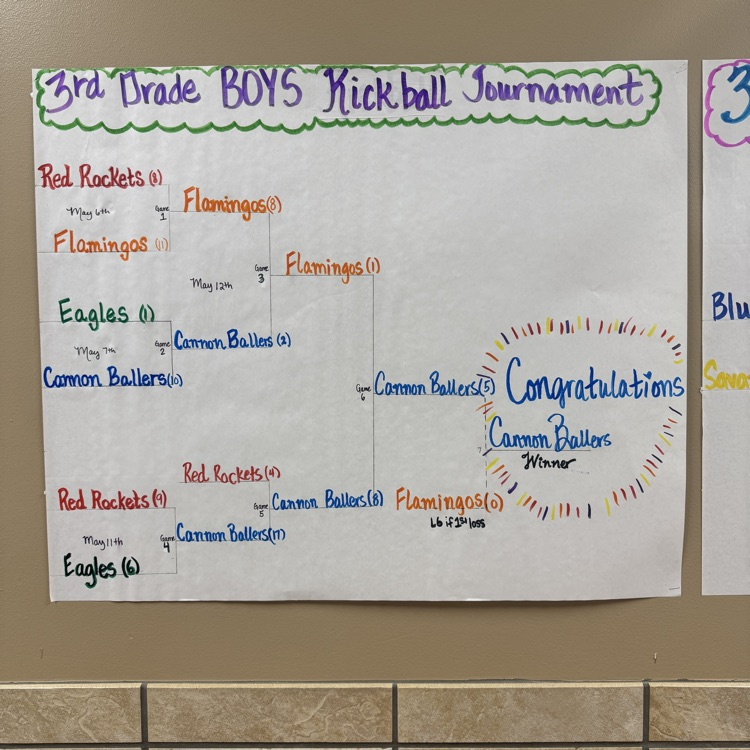 3rd Grade BOYS Kickball Tournament
Red Rockets (8)
May 6th
Game 1
Flamingos (11)
Flamingos (8)
Game 3
May 12th
Flamingos (1)
Eagles (1)
May 7th
Game 2
Cannon Ballers (10)
Cannon Ballers (2)
Game 6
Cannon Ballers (5)
Congratulations
Cannon Ballers
Winner
Red Rockets (9)
May 11th
Game 4
Eagles (6)
Red Rockets (4)
Game 5
Cannon Ballers
Cannon Ballers (8)
Flamingos (0)
L6 if 1st loss
7
3
Blu
Sava